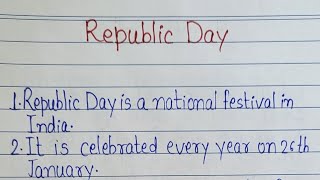 Republic Day
1. Republic Day is a national festival in
India.
2. It is celebrated every year on 26th
January.